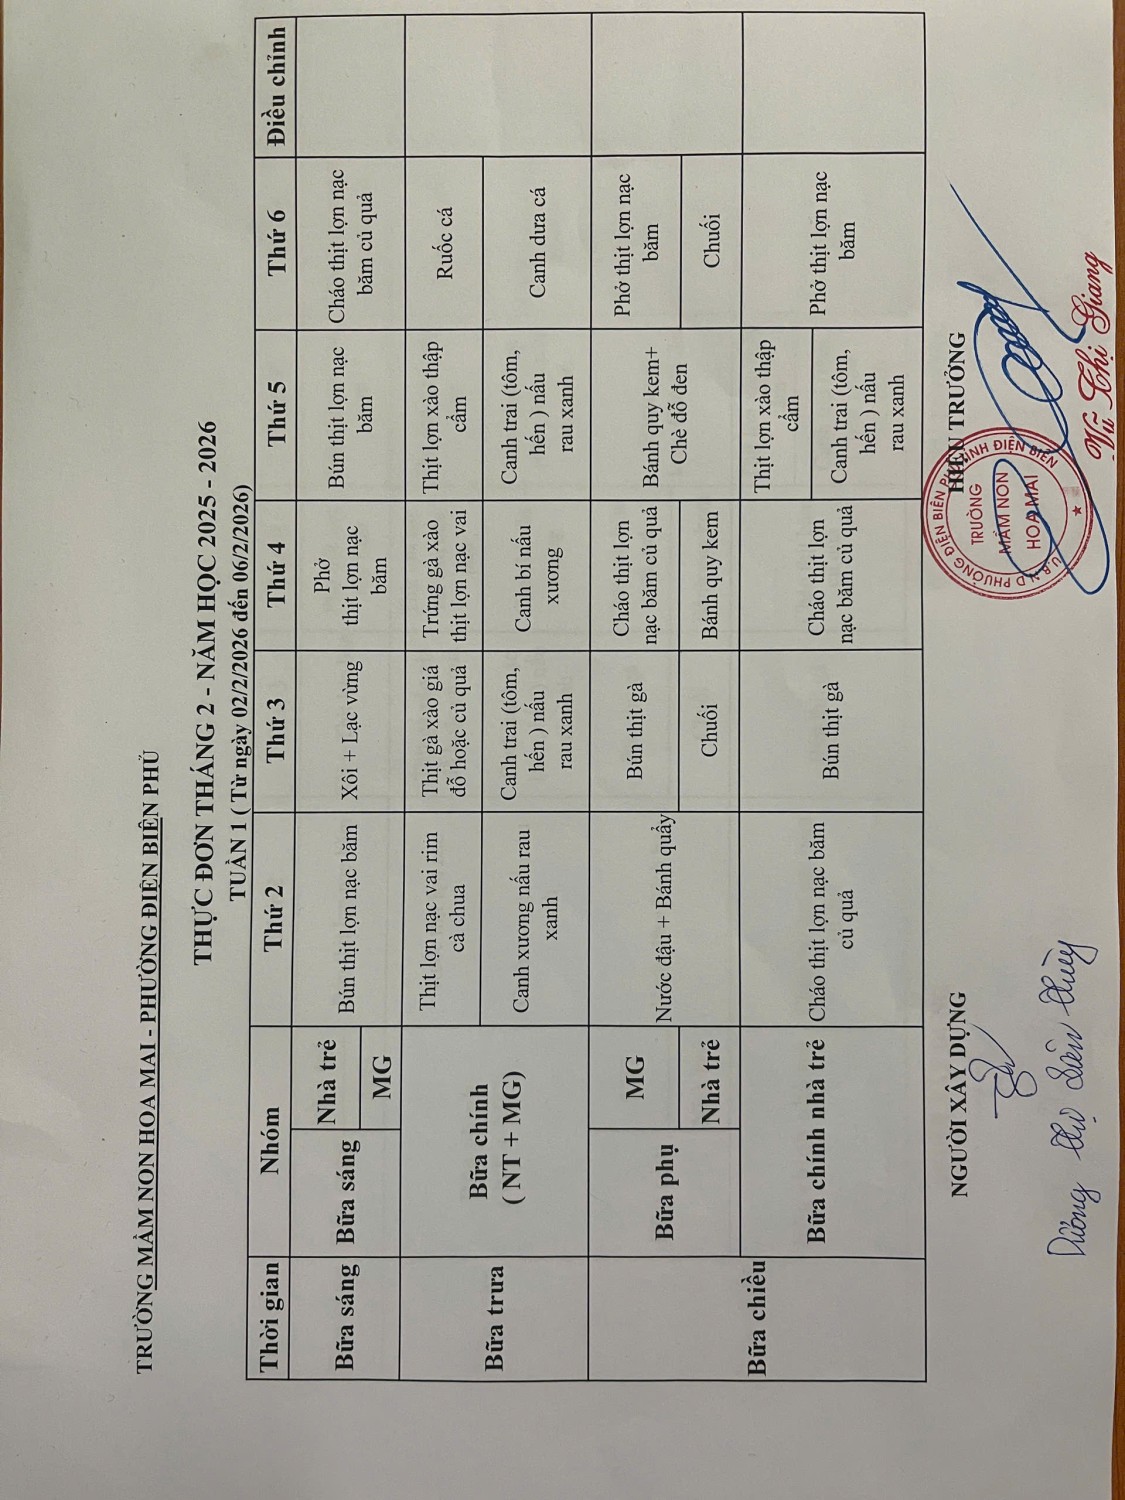 TRƯỜNG MẦM NON HOA MAI - PHƯỜNG ĐIỆN BIÊN PHỦ
THỰC ĐƠN THÁNG 2 - NĂM HỌC 2025 - 2026
TUẦN 1 ( Từ ngày 02/2/2026 đến 06/2/2026)
Thời gian
Nhóm
Thứ 2
Thứ 3
Thứ 4
Thứ 5
Thứ 6
Điều chỉnh
Bữa sáng
Bữa sáng
Nhà trẻ
MG
Bún thịt lợn nạc băm
Xôi + Lạc vừng
Phở
thịt lợn nạc
băm
Bún thịt lợn nạc
băm
Cháo thịt lợn nạc
băm củ quả
Bữa trưa
Bữa chính
( NT + MG)
Thịt lợn nạc vai rim
cà chua
Thịt gà xào giá
đỗ hoặc củ quả
Trứng gà xào
thịt lợn nạc vai
Thịt lợn xào thập
cẩm
Ruốc cá
Canh xương nấu rau
xanh
Canh trai (tôm,
hến ) nấu
rau xanh
Canh bí nấu
xương
Canh trai (tôm,
hến ) nấu
rau xanh
Canh dưa cá
Bữa chiều
Bữa phụ
MG
Nhà trẻ
Nước đậu + Bánh quẩy
Bún thịt gà
Cháo thịt lợn
nạc băm củ quả
Bánh quy kem+
Chè đỗ đen
Phở thịt lợn nạc
băm
Chuối
Bánh quy kem
Chuối
Bữa chính nhà trẻ
Cháo thịt lợn nạc băm
củ quả
Bún thịt gà
Cháo thịt lợn
nạc băm củ quả
Thịt lợn xào thập
cẩm
Canh trai (tôm,
hến ) nấu
rau xanh
Phở thịt lợn nạc
băm
NGƯỜI XÂY DỰNG
HIỆU TRƯỞNG
U.B.N.D PHƯỜNG ĐIỆN BIÊN PHỦ TỈNH ĐIỆN BIÊN
TRƯỜNG
MẦM NON
HOA MAI
Vũ Thị Giang